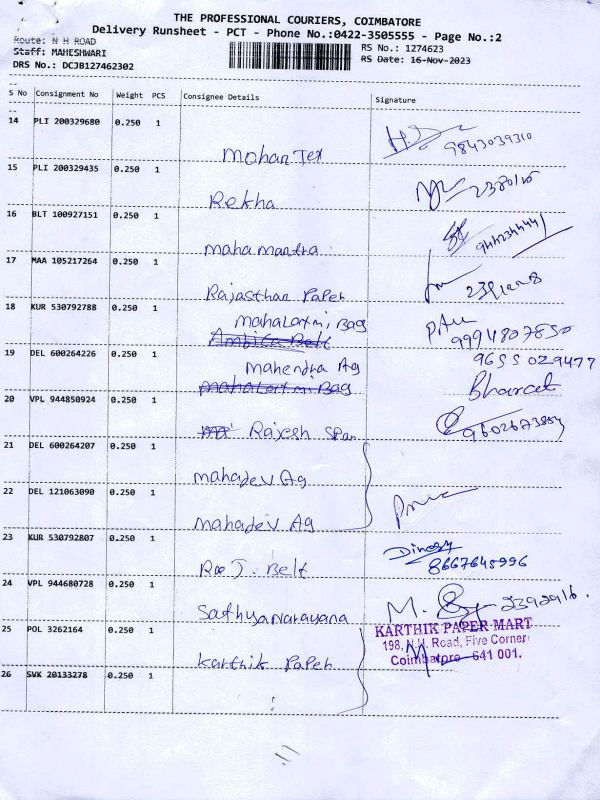 THE PROFESSIONAL COURIERS, COIMBATORE
Delivery Runsheet - PCT - Phone No.:0422-3505555 - Page No.:2
Route: N H ROAD
Staff: MAHESHWARI
DRS No.: DCJB127462302
RS No.: 1274623
RS Date: 16-Nov-2023
S No Consignment No Weight PCS Consignee Details Signature
14 PLI 200329680 0.250 1
Mohan Tex 9843039310
15 PLI 200329435 0.250 1
Rekha
16 BLT 100927151 0.250 1
maha mantra
17 MAA 105217264 0.250 1
Rajasthan Paper
18 KUR 530792788 0.250 1
mahalaxmi Bag
Ambica Belt 9994807850
19 DEL 600264226 0.250 1 9655029477
mahendra Ag
mahalaxmi Bag Bharat
20 VPL 944850924 0.250 1
ma' Rajesh Span
21 DEL 600264207 0.250 1
mahadev Ag
22 DEL 121063090 0.250 1
mahadev Ag
23 KUR 530792807 0.250 1 Dinesh
Raj. Belt 8667645996
24 VPL 944680728 0.250 1
Sathyanarayana M. 2392916.
25 POL 3262164 0.250 1 KARTHIK PAPER MART
198, N.H. Road, Five Corner
Karthik Paper Coimbatore - 641 001.
26 SVK 20133278 0.250 1